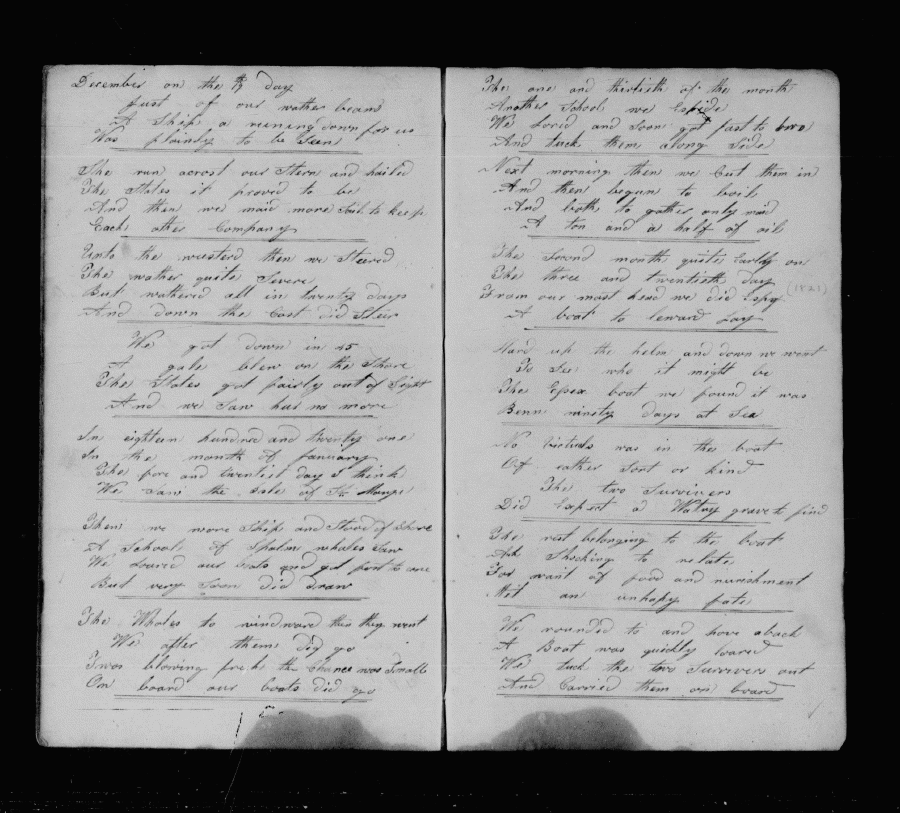 December on the 13 day
Just of our wather beam
A Ship a runing down for us
Was plainly to be Seen
She run acrost our Stern and hailed
The States it proved to be
And then we maid more Sail to keep
Each other Company
Unto the westerd then we Steared
The wather quite Severe
But wathered all in twenty days
And down the Cost did Steir
We got down in 45
A gale blew on the Shore
The States got fairly out of Sight
And we Saw her no more
In eighteen hundred and twenty one
In the month of January
The fore and twentist day I think
We Saw the Isle of St Marys
Then we more Ship and Stood of Shore
A School of Spalm whales Saw
We Loared our boats and got fast to one
But very Soon did draw
The Whales to windward then they went
We after them did go
Twas blowing fresh the chance was Small
On board our boats did go
The one and thirtieth of the month
Another School we Espide
We Lored and Soon got fast to two
And tuck them along Side
Next morning then we Cut them in
And then begun to boil
And both to gather only maid
A ton and a half of oil
The Second month quite Early on
The three and twentieth day
From our mast head we did Espy (1821)
A boat to leward Lay
Hard up the helm and down we went
To See who it might be
The Essex boat we found it was
Benn ninety days at Sea
No victuals was in the boat
Of rather Sort or kind
The two Survivers
Did Expect a Watry grave to find
The rest belonging to the boat
Ah Shocking to relate
For want of food and nurishment
Met an unhapy fate
We rounded to and hove aback
A Boat was quickly loared
We tuck the two Survivers out
And Carried them on board